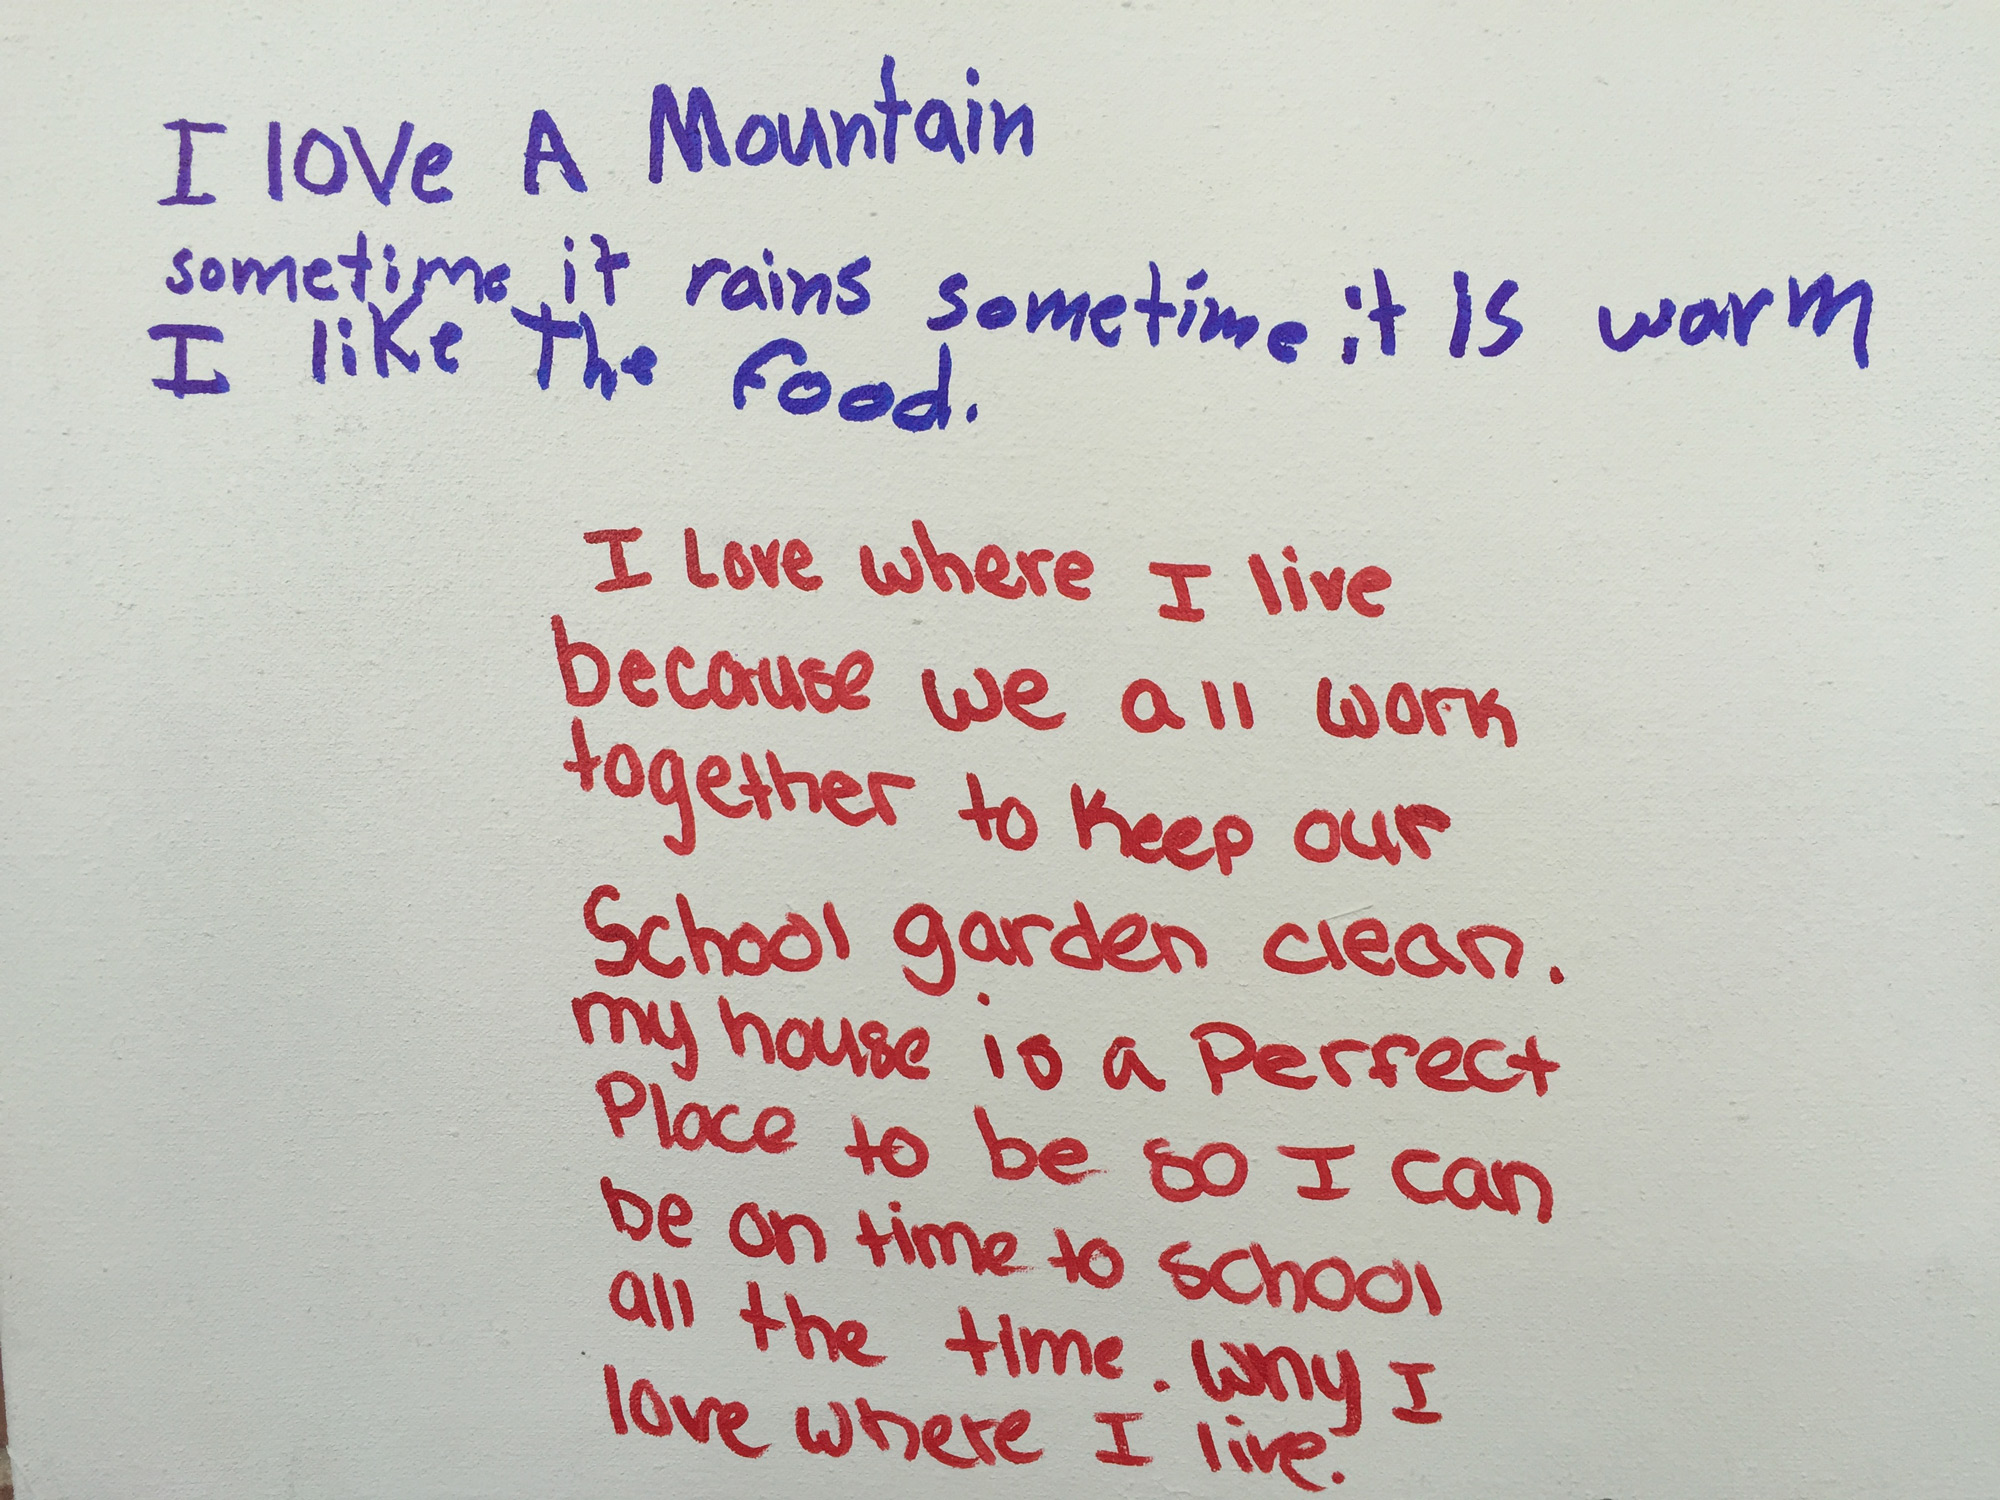 I love A Mountain
sometime it rains sometime it Is warm
I like The food.
I Love where I live
because we all work
together to keep our
School garden clean.
my house is a Perfect
Place to be so I can
be on time to school
all the time. Why I
love where I live.